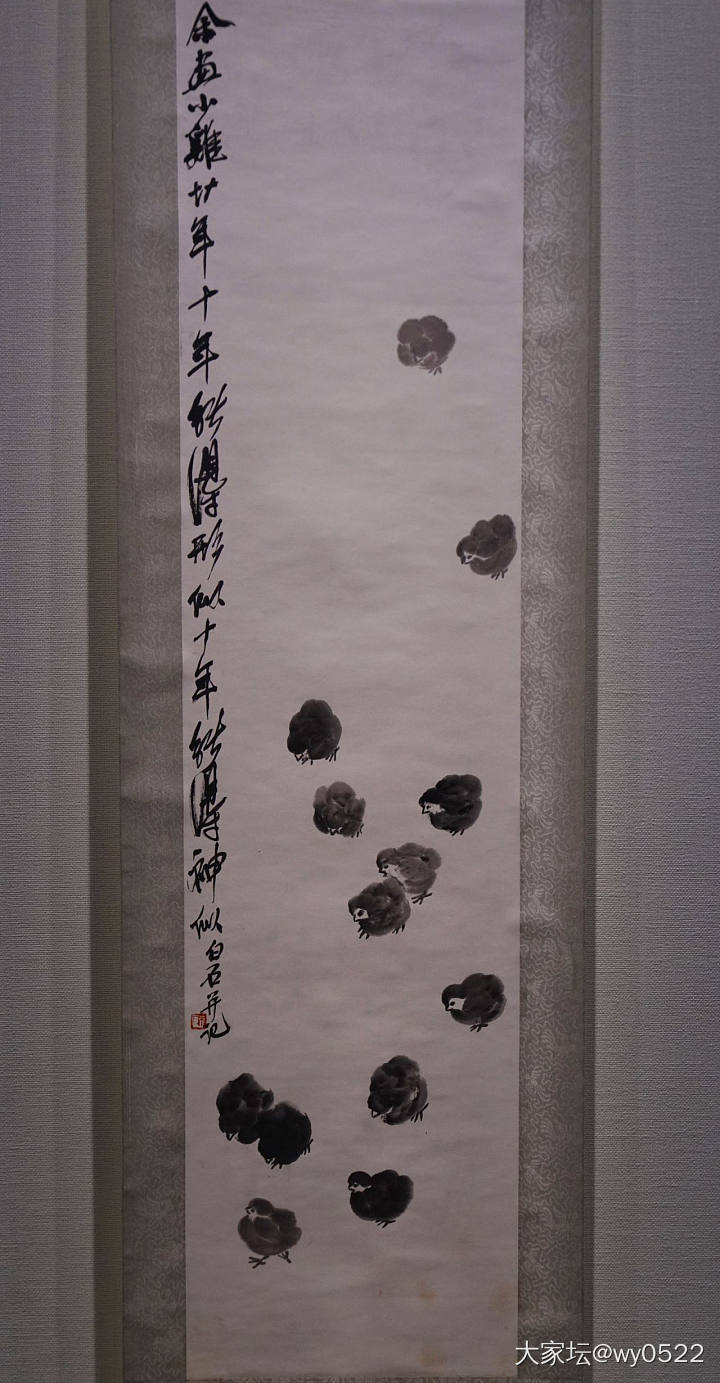 余画小雞廿年十年能得形似十年能得神似
白石并记
大家坛@wy0522